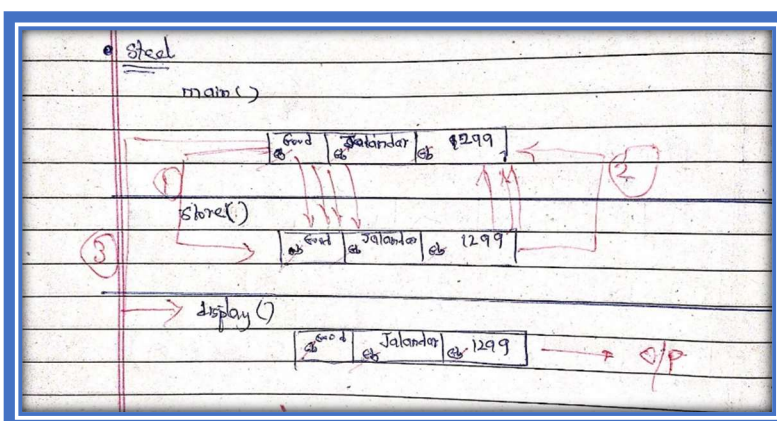 Steel
main()
Good Jalandar 1299
1
2
store()
Good Jalandar 1299
3
display()
Good Jalandar 1299 O/P